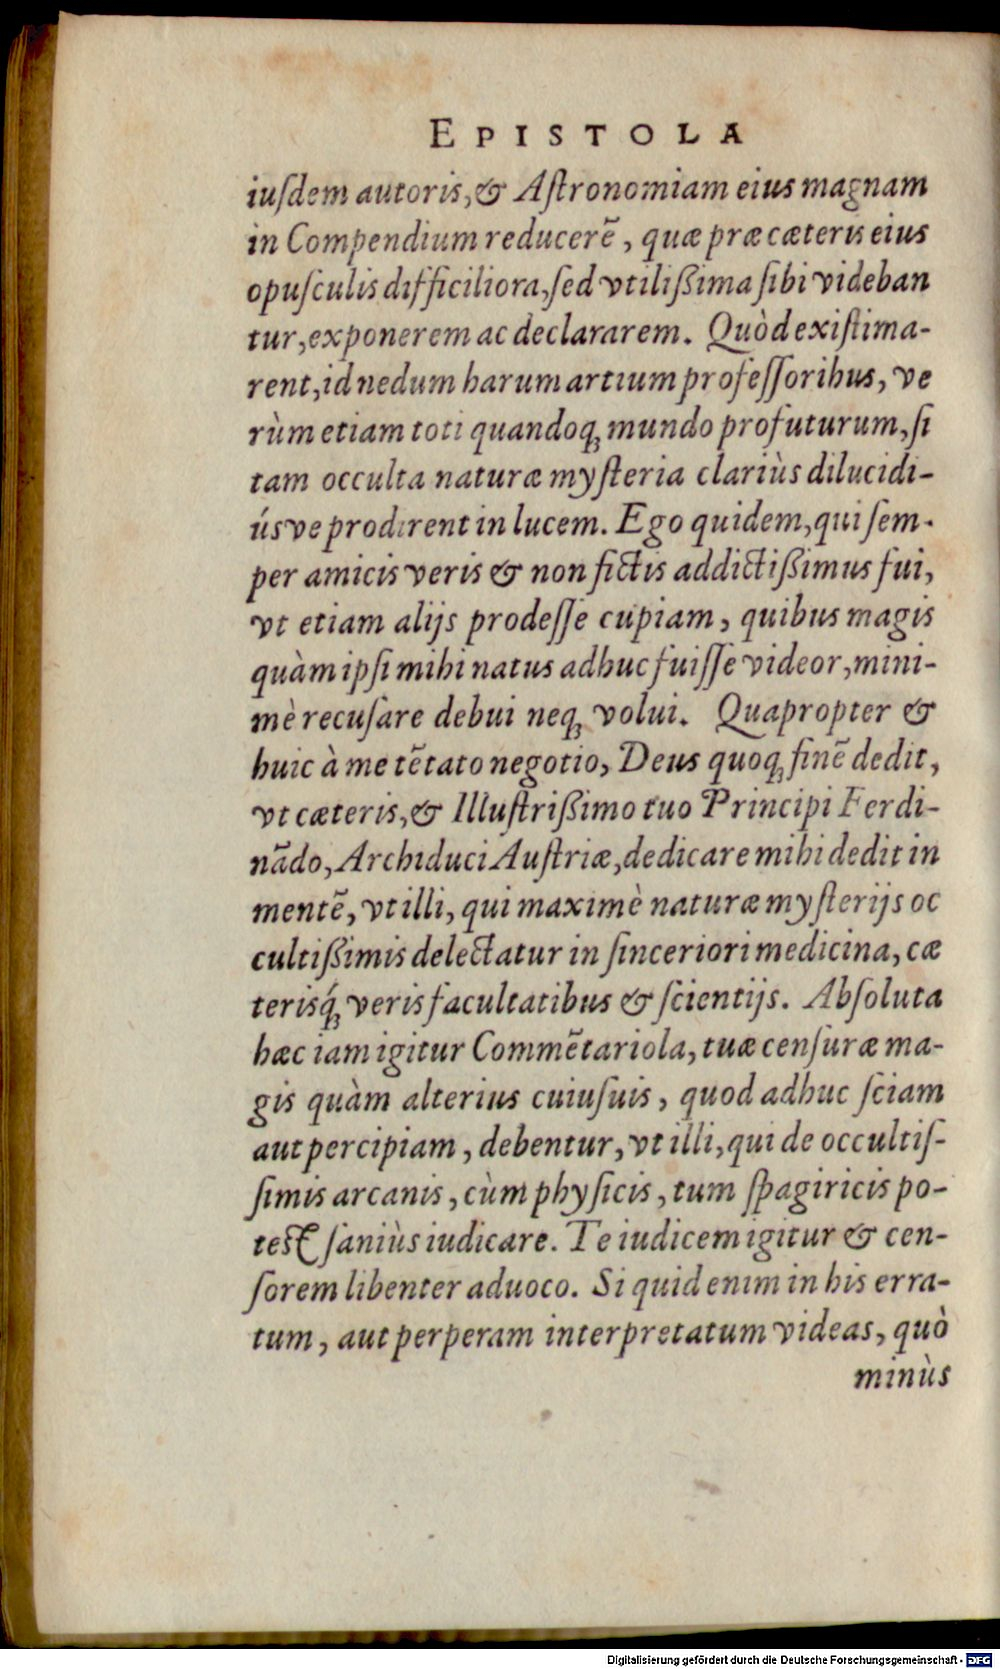 EPISTOLA
iuſdem autoris, & Aſtronomiam eius magnam
in Compendium reducerē, quæ præ cæteris eius
opuſculis difficiliora, ſed vtilißima ſibi videban
tur, exponerem ac declararem. Quòd exiſtima-
rent, id nedum harum artium profeſſoribus, ve
rùm etiam toti quandoq; mundo profuturum, ſi
tam occulta naturæ myſteria clariùs dilucidi-
úsve prodirent in lucem. Ego quidem, qui ſem-
per amicis veris & non fictis addictißimus fui,
vt etiam alijs prodeſſe cupiam, quibus magis
quàm ipſi mihi natus adhuc fuiſſe videor, mini-
mè recuſare debui neq; volui. Quapropter &
huic à me tētato negotio, Deus quoq; finē dedit,
vt cæteris, & Illuſtrißimo tuo Principi Ferdi-
nādo, Archiduci Auſtriæ, dedicare mihi dedit in
mentē, vt illi, qui maximè naturæ myſterijs oc
cultißimis delectatur in ſinceriori medicina, cæ
terisq́; veris facultatibus & ſcientijs. Abſoluta
hæc iam igitur Commētariola, tuæ cenſuræ ma-
gis quàm alterius cuiuſuis, quod adhuc ſciam
aut percipiam, debentur, vt illi, qui de occultiſ-
ſimis arcanis, cùm phyſicis, tum ſpagiricis po-
test ſaniùs iudicare. Te iudicem igitur & cen-
ſorem libenter aduoco. Si quid enim in his erra-
tum, aut perperam interpretatum videas, quò
minùs
Digitalisierung gefördert durch die Deutsche Forschungsgemeinschaft - DFG